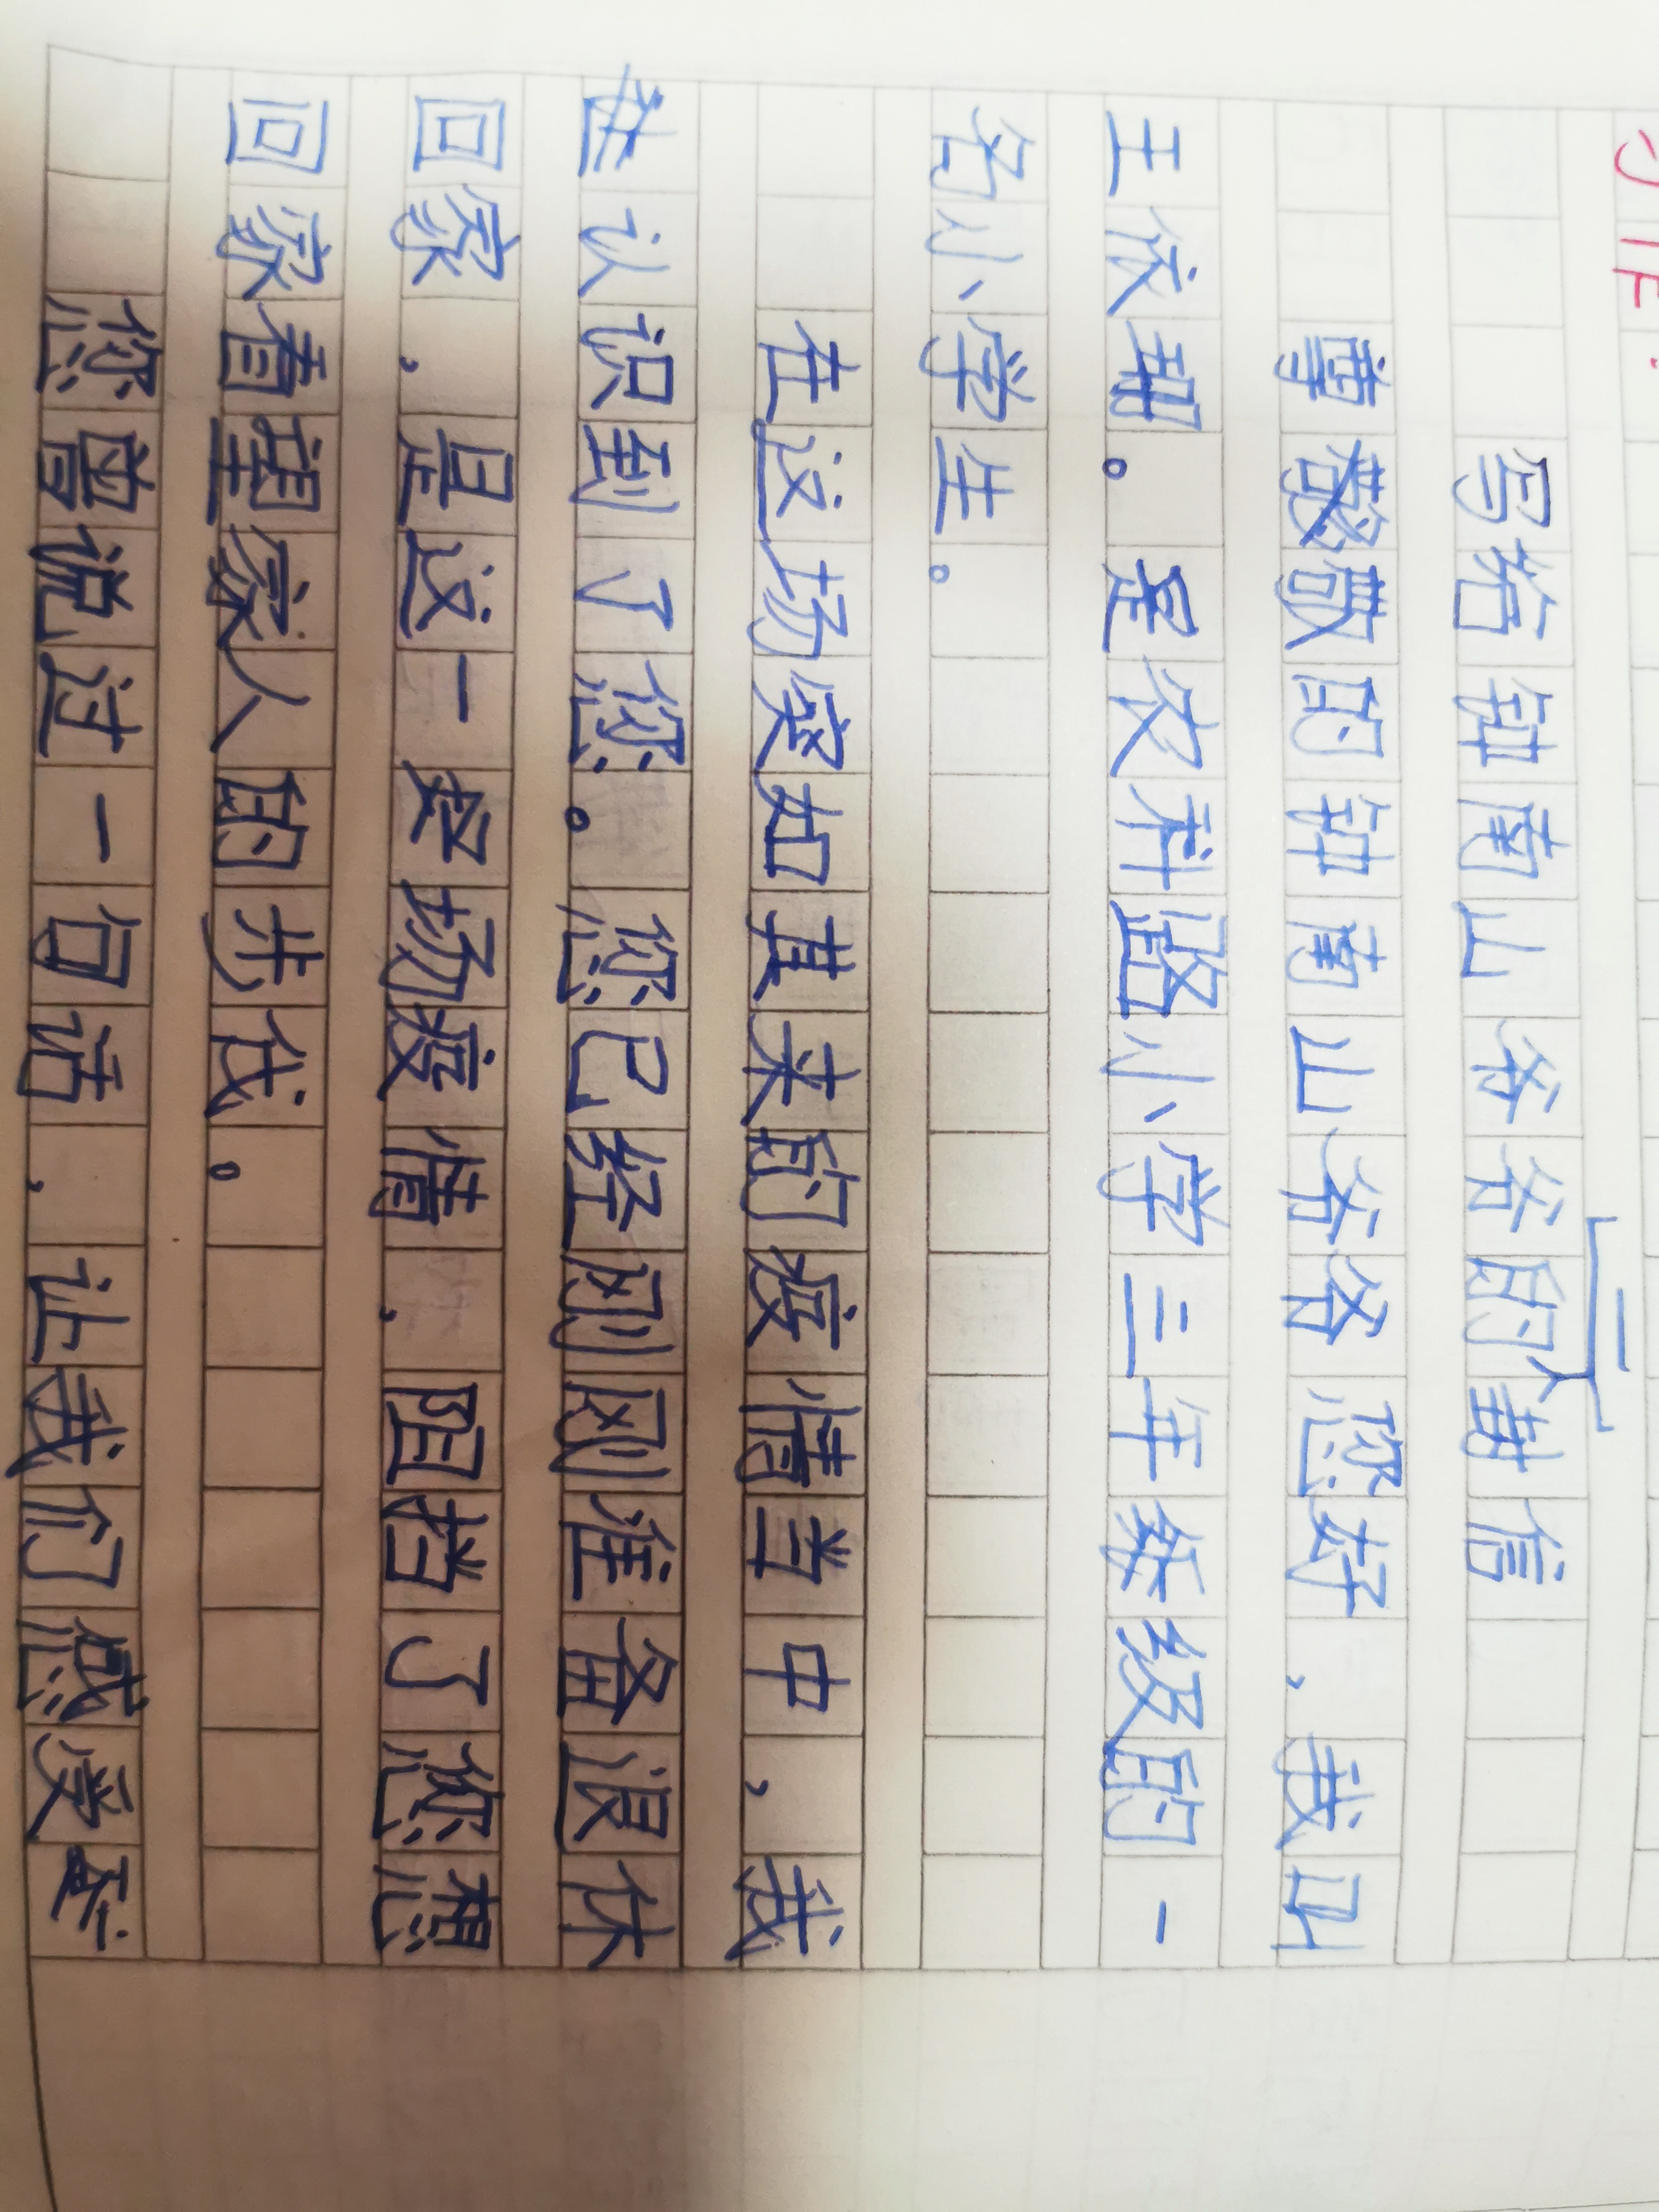 写给钟南山爷爷的一封信
尊敬的钟南山爷爷您好，我叫
王依珊。是农科路小学三年级的一
名小学生。
在这场突如其来的疫情当中，我
认识到了您。您已经刚刚准备退休
回家，是这一场疫情，阻挡了您想
回家看望家人的步伐。
您曾说过一句话，让我们感受